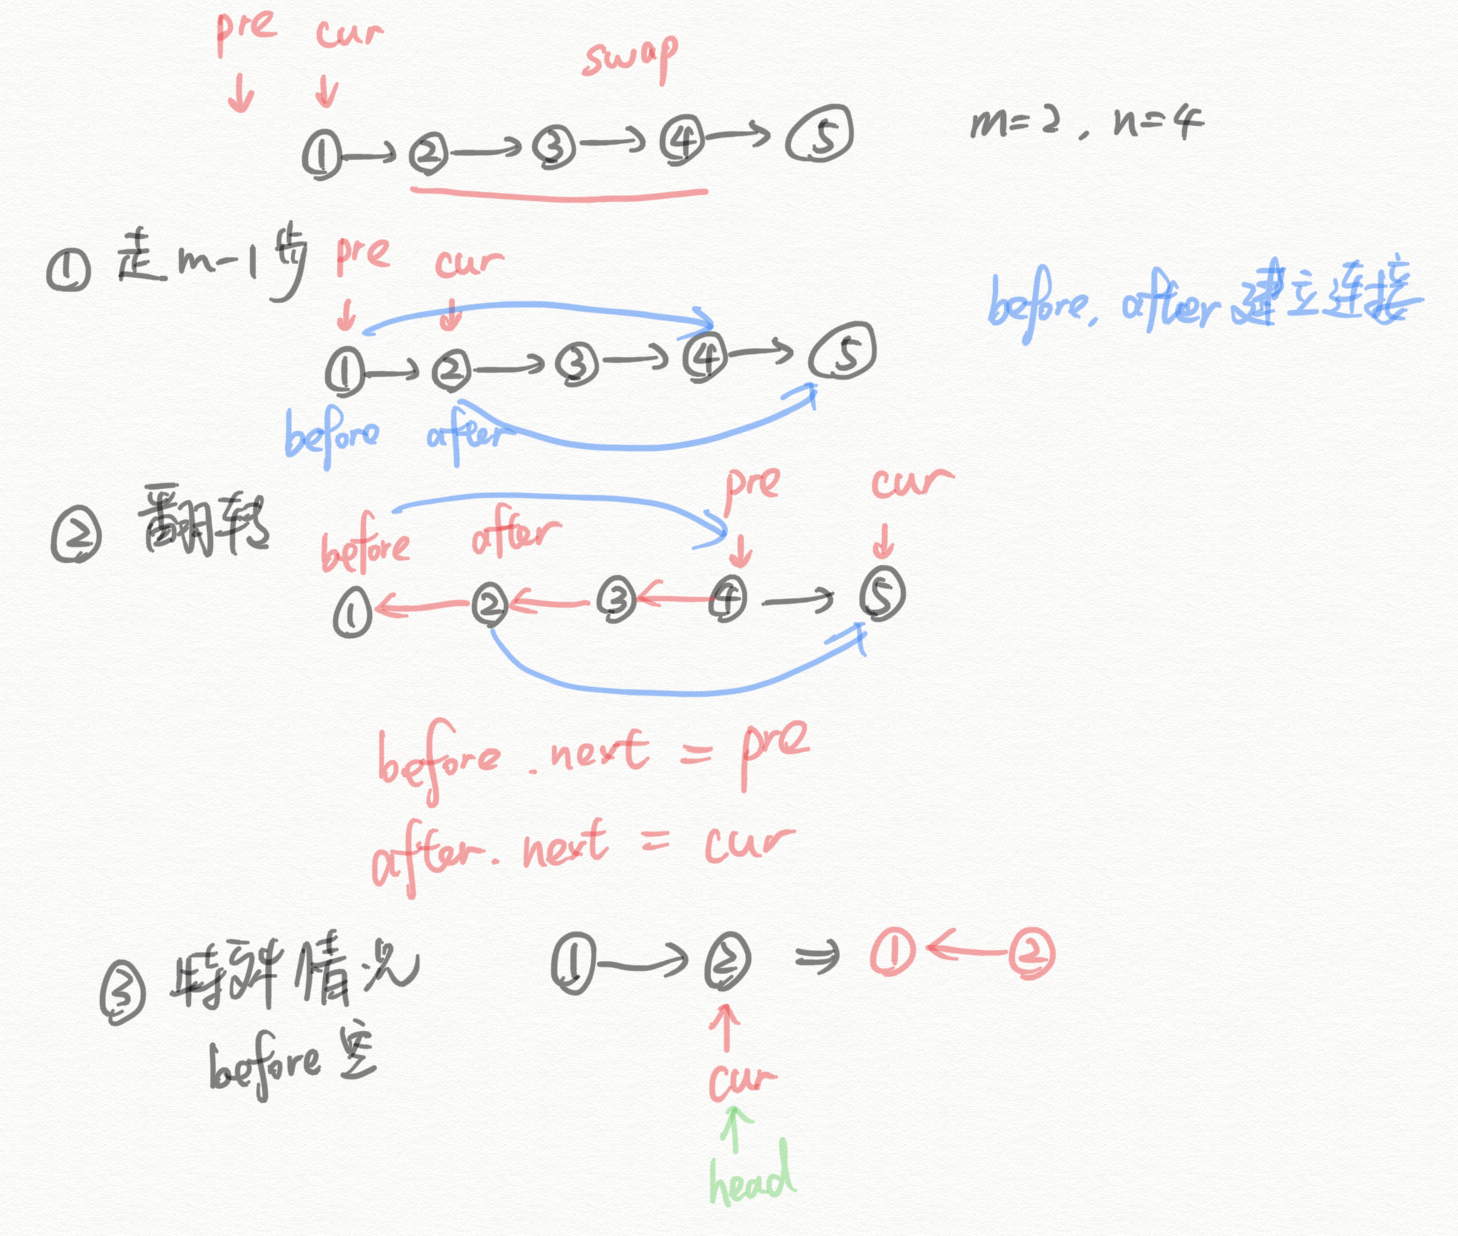 pre cur swap
① → ② → ③ → ④ → ⑤ m=2, n=4
① 走 m-1 步 pre cur
before, after 建立连接
① → ② → ③ → ④ → ⑤
before after
pre cur
② 翻转 before after
① ← ② ← ③ ← ④ → ⑤
before.next = pre
after.next = cur
③ 特殊情况 ① → ② ⇒ ① ← ②
before 空
cur
head